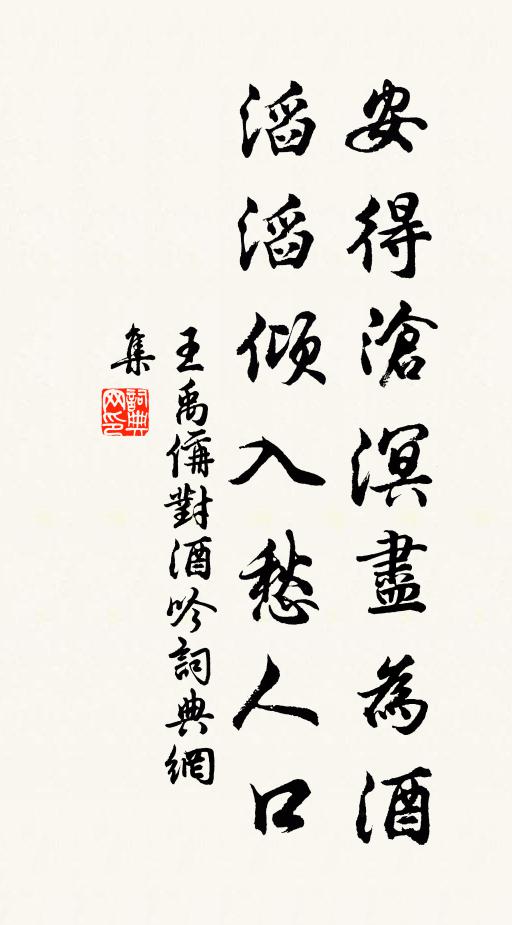 安得滄溟盡為酒
滔滔傾入愁人口
王禹偁對酒吟詞典網
集
詞典
网印